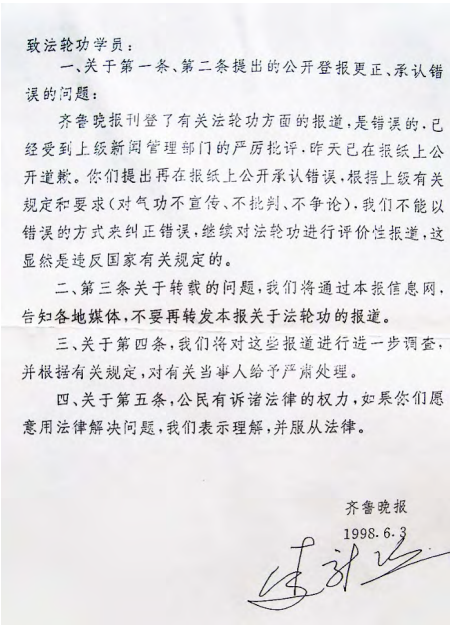 致法轮功学员：
一、关于第一条、第二条提出的公开登报更正、承认错
误的问题：
齐鲁晚报刊登了有关法轮功方面的报道，是错误的，已
经受到上级新闻管理部门的严厉批评，昨天已在报纸上公
开道歉。你们提出再在报纸上公开承认错误，根据上级有关
规定和要求（对气功不宣传、不批判、不争论），我们不能以
错误的方式来纠正错误，继续对法轮功进行评价性报道，这
显然是违反国家有关规定的。
二、第三条关于转载的问题，我们将通过本报信息网，
告知各地媒体，不要再转发本报关于法轮功的报道。
三、关于第四条，我们将对这些报道进行进一步调查，
并根据有关规定，对有关当事人给予严肃处理。
四、关于第五条，公民有诉诸法律的权力，如果你们愿
意用法律解决问题，我们表示理解，并服从法律。
齐鲁晚报
1998.6.3